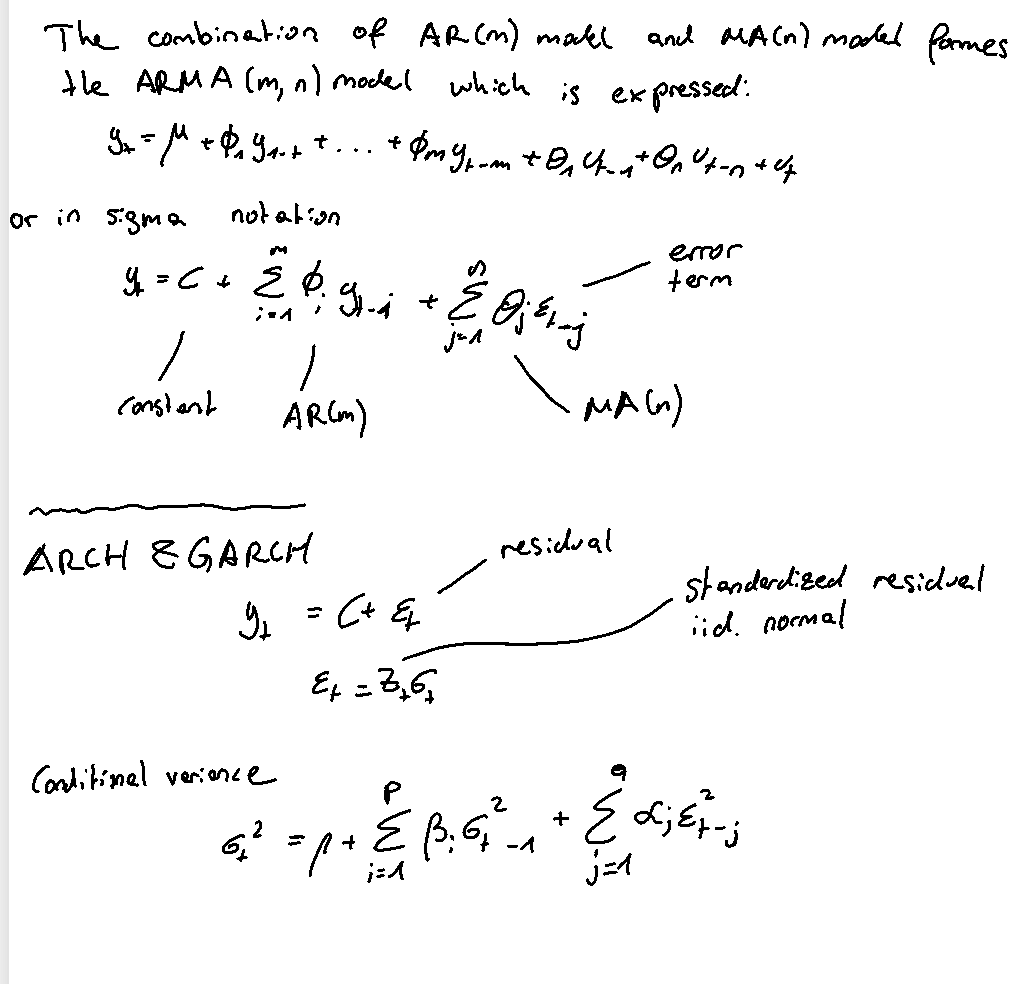 The combination of AR(m) model and MA(n) model formes
the ARMA (m, n) model which is expressed:
y_t = μ + ϕ_1 y_{1-t} + ... + ϕ_m y_{t-m} + θ_1 u_{t-1} + θ_n u_{t-n} + u_t
or in sigma notation
y_t = C + Σ_{i=1}^{m} ϕ_i y_{t-i} + Σ_{j=1}^{n} θ_j ε_{t-j}
error
term
constant AR(m) MA(n)
ARCH & GARCH
residual
y_t = C + ε_t
standardized residual
iid. normal
ε_t = z_t σ_t
Conditinal variance
σ_t^2 = μ + Σ_{i=1}^{p} β_i σ_t^2_{-1} + Σ_{j=1}^{q} α_j ε_{t-j}^2